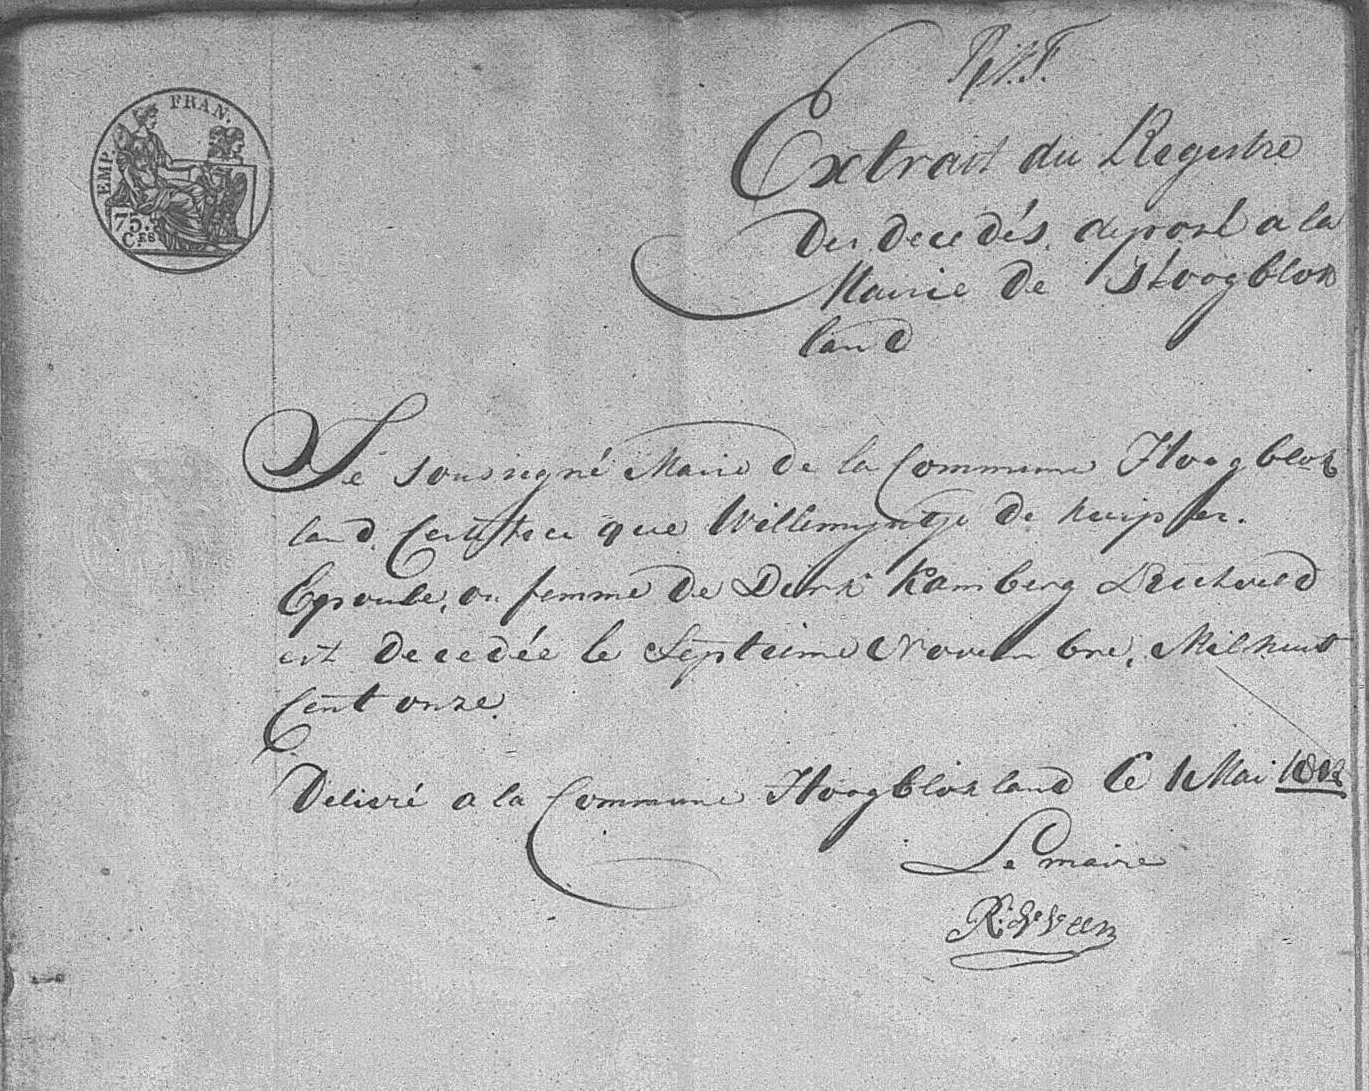 EMP. FRAN.
75. C.ES
Extrait du Registre
Des decedés, deposé a la
Mairie de Hoogblok
land
Je soussigné Maire de la Commune Hoogblok
land, Certifice que Willemyntje de kuiper.
Epouse, ou femme de Dirk Kamberg
est decedée le Septieme Novembre, Mil huit
Cent onze.
Delivré a la Commune Hoogblokland le 1 Mai 1812
Le maire